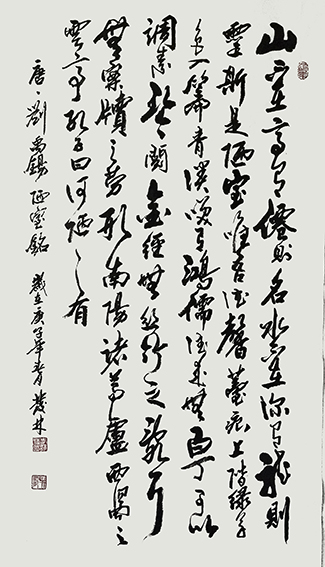 山不在高有僊則名水不在深有龍則
靈斯是陋室唯吾德馨薹痕上階綠草
色入簾青談笑有鴻儒往來無白丁可以
調素琴閱金經無絲竹之亂耳
無案牘之勞形南陽諸葛廬西蜀子
雲亭孔子曰何陋之有
唐劉禹錫陋室銘 歲在庚子年